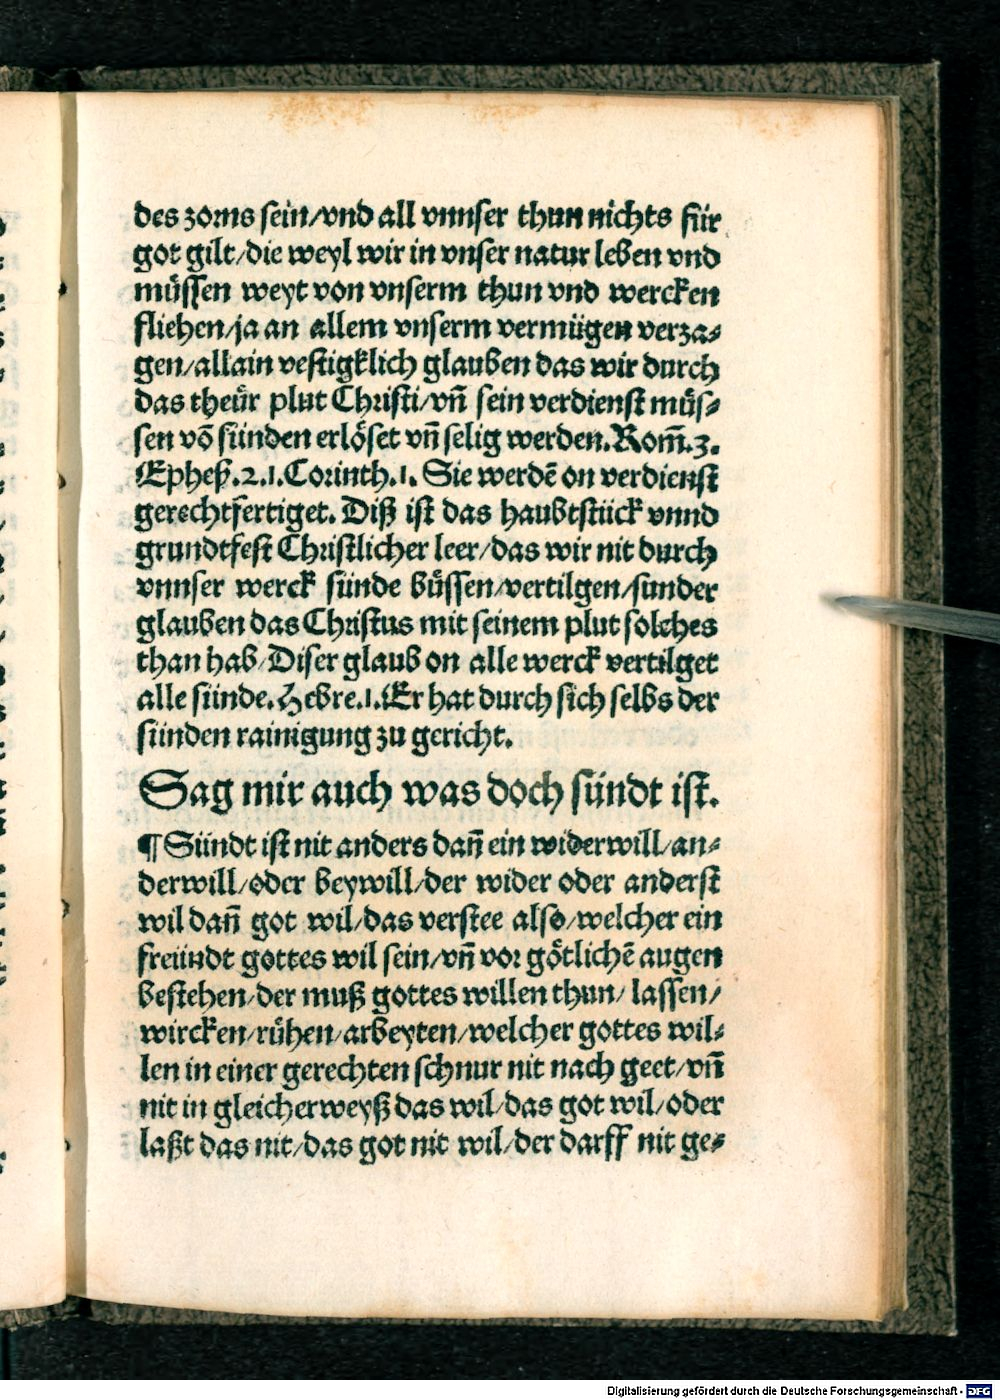 des zorns sein/vnd all vnnser thun nichts für
got gilt/die weyl wir in vnser natur leben vnd
müssen weyt von vnserm thun vnd wercken
fliehen/ja an allem vnserm vermügen verza⸗
gen/allain vestigklich glauben das wir durch
das theür plut Christi/vñ sein verdienst müs⸗
sen võ sünden erlöset vñ selig werden. Rom̃.3.
Epheß.2.1.Corinth.1. Sie werdẽ on verdienst
gerechtfertiget. Diß ist das haubtstück vnnd
grundtfest Christlicher leer/das wir nit durch
vnnser werck sünde büssen/vertilgen/sunder
glauben das Christus mit seinem plut solches
than hab/Diser glaub on alle werck vertilget
alle sünde. Hebre.1. Er hat durch sich selbs der
sünden rainigung zu gericht.
Sag mir auch was doch sündt ist.
¶ Sündt ist nit anders dañ ein widerwill/an⸗
derwill/oder beywill/der wider oder anderst
wil dañ got wil/das verstee also/welcher ein
freündt gottes wil sein/vñ vor götlichẽ augen
bestehen/der muß gottes willen thun/lassen/
wircken/rühen/arbeyten/welcher gottes wil⸗
len in einer gerechten schnur nit nach geet/vñ
nit in gleicherweyß das wil/das got wil/oder
laßt das nit/das got nit wil/der darff nit ge⸗
Digitalisierung gefördert durch die Deutsche Forschungsgemeinschaft - DFG